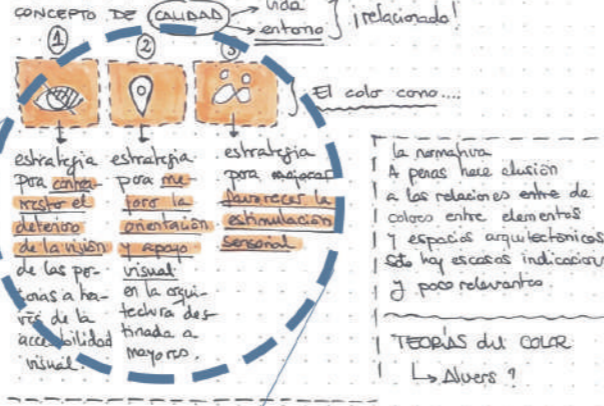 CONCEPTO DE CALIDAD → vida
→ entorno } ¡relacionado!
1
2
3
El colo como....
estrategia
para contra-
rrestar el
deterioro
de la visión
de las per-
sonas a tra-
vés de la
accesibilidad
visual.
estrategia
para me-
jora la
orientación
y apoyo
visual
en la arqui-
tectura des-
tinada a
mayores.
estrategia
para mejorar
favorecer la
estimulación
sensorial
la normativa
A penas hace alusión
a las relaciones entre de
colores entre elementos
y espacios arquitectónicos
solo hay escasas indicaciones
y poco relevantes
TEORÍAS del COLOR
↳ Alvers ?